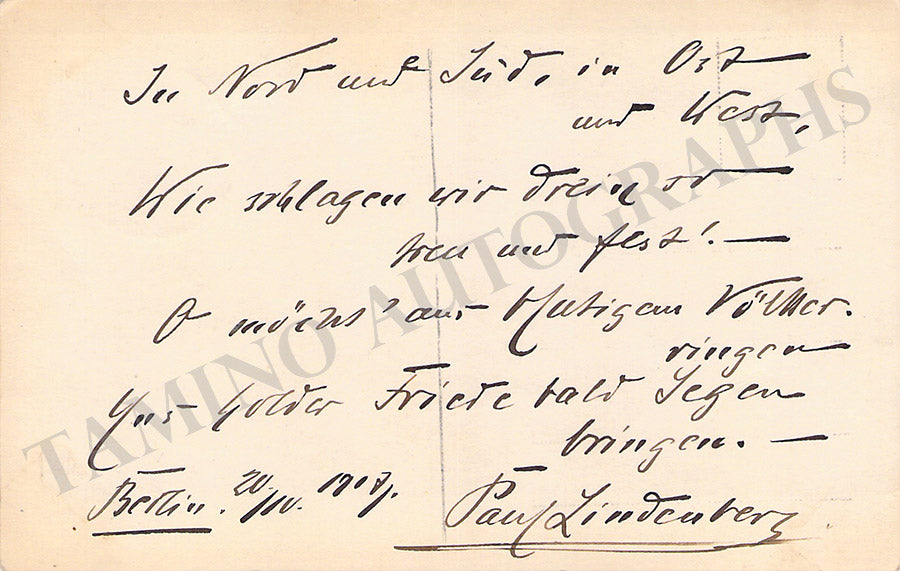 In Nord und Süd, in Ost —
und West,
Wie schlagen wir drein so —
treu und fest! —
O möcht' aus blutigem Völker-
ringen
Uns holder Friede bald Segen
bringen. —
Berlin. 20/IV. 1917.
Paul Lindenberg
TAMINO AUTOGRAPHS